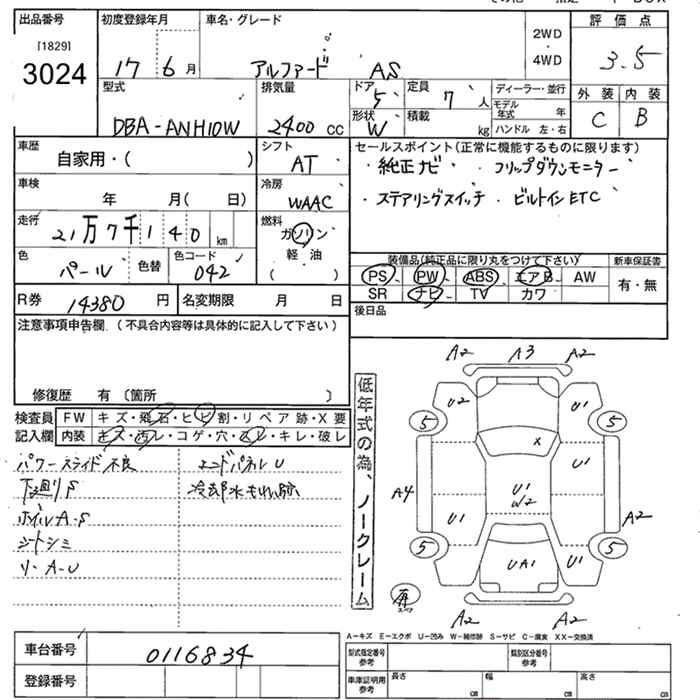 出品番号 初度登録年月 車名・グレード 2WD・4WD 評価点
[1829]
3024 17 6月 アルファード AS 3.5
型式 排気量 ドア 5 定員 7人 ディーラー・並行 外装 内装
DBA-ANH10W 2400 cc 形状 W 積載 kg モデル年式 年 C B
ハンドル 左・右
車歴 自家用・( ) シフト AT セールスポイント(正常に機能するものに限ります)
・純正ナビ ・フリップダウンモニター
車検 年 月( 日) 冷房 WAAC ・ステアリングスイッチ ・ビルトインETC
走行 21万7千140 km 燃料 ガソリン
軽油
( )
色 パール 色替 色コード 042
装備品(純正品に限り丸をつけて下さい) 新車保証書
PS PW ABS エアB AW 有・無
SR ナビ TV カワ
R券 14380円 名変期限 月 日 後日品
注意事項申告欄(不具合内容等は具体的に記入して下さい)
修復歴 有〔箇所 〕
検査員 FW キズ・飛石・ヒビ割・リペア跡・X要
記入欄 内装 キズ・汚レ・コゲ・穴・スレ・キレ・破レ
パワースライド不良 エンドパネルU
下廻りS 冷却水もれ跡
ホイルA・S
シートシミ
リ・A-U
低年式の為、ノークレーム
A2 A3 A2
U2 U1
5 5
X
U1
A4 U1 W2
U1 A2
5 5
UA1 U1
再
スペア
A2 A2
A-キズ E-エクボ U-凹み W-補修跡 S-サビ C-腐食 XX-交換済
車台番号 0116834
登録番号
型式指定番号 参考 類別区分番号 参考
車庫証明用 参考 長さ cm 幅 cm 高さ cm